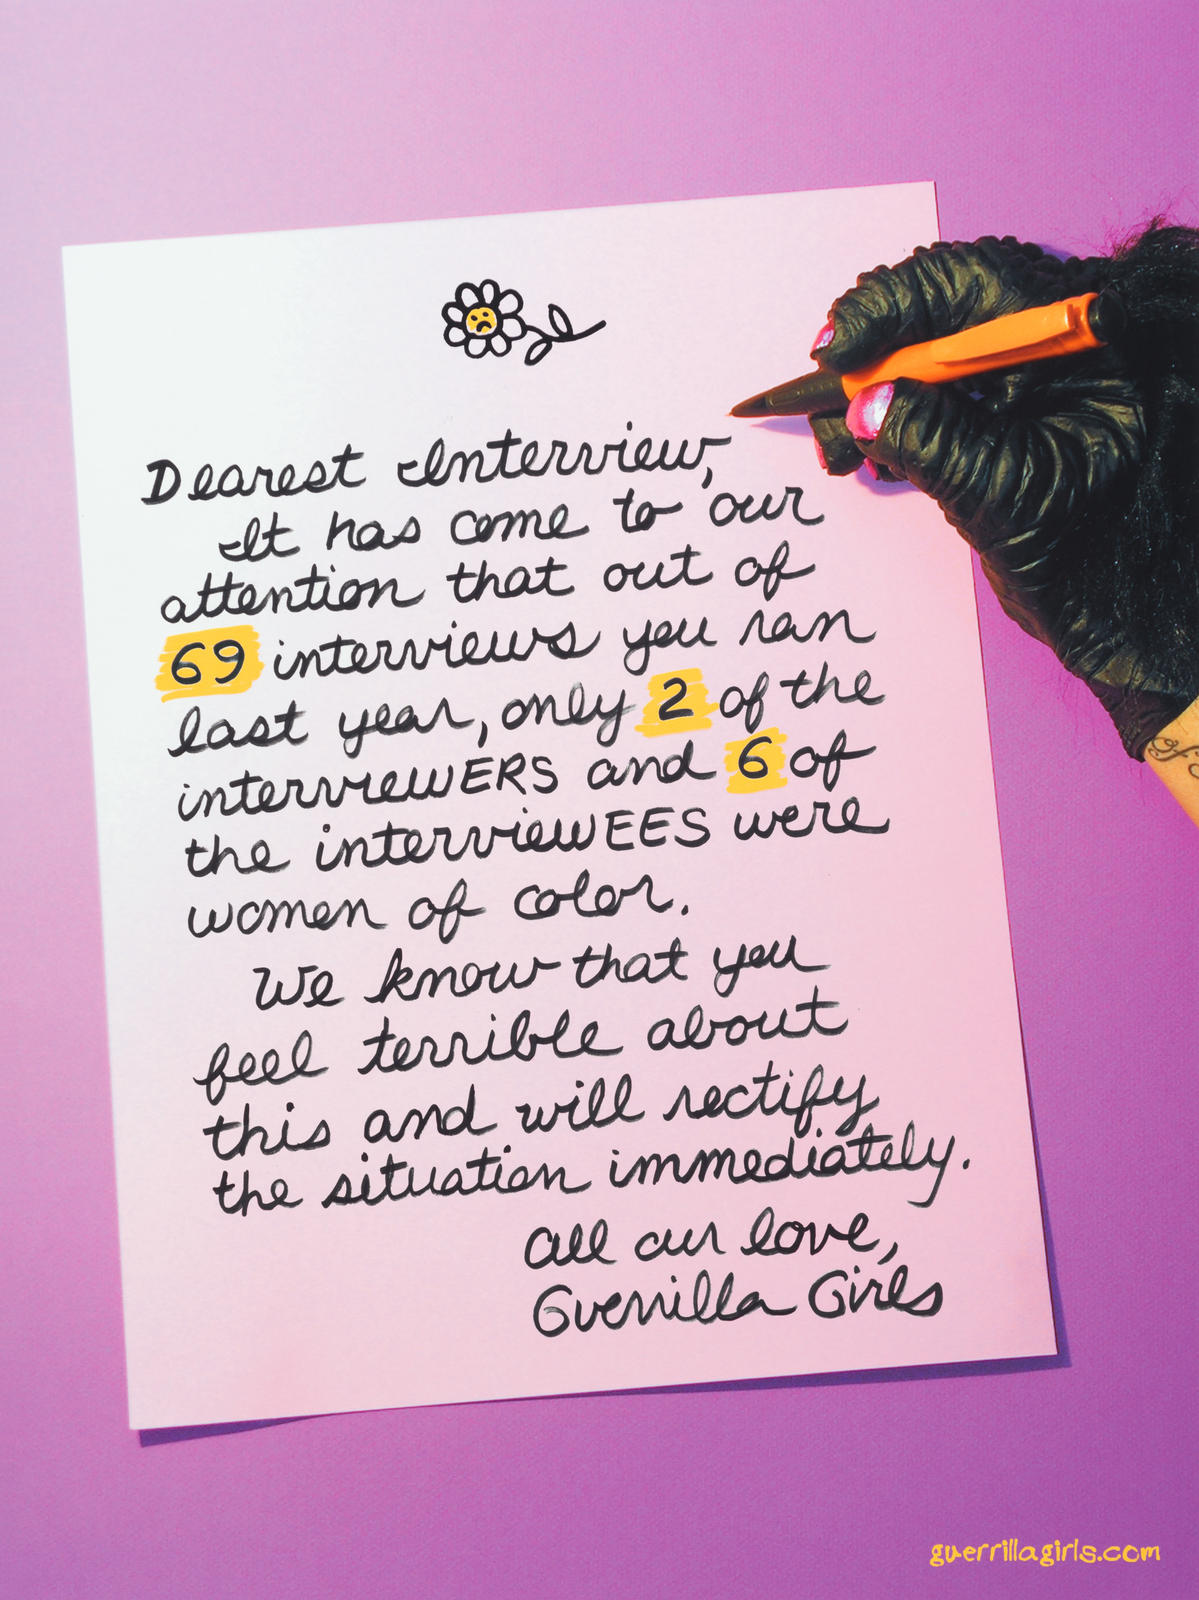 Dearest Interview,
It has come to our
attention that out of
69 interviews you ran
last year, only 2 of the
interviewERS and 6 of
the interviewEES were
women of color.
We know that you
feel terrible about
this and will rectify
the situation immediately.
All our love,
Guerrilla Girls
guerrillagirls.com